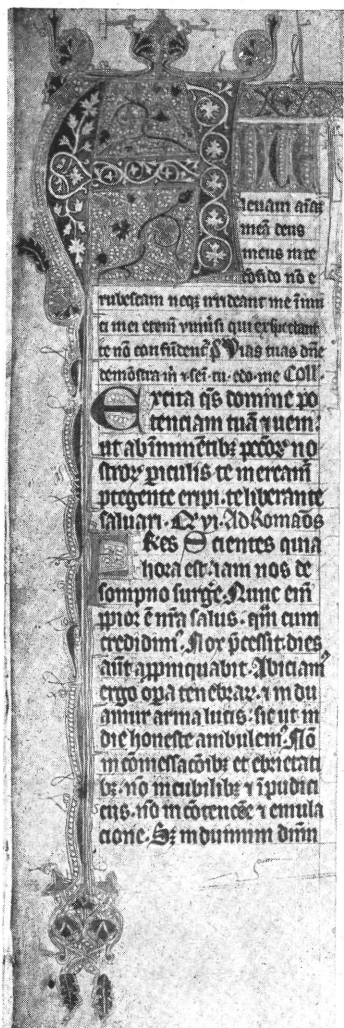 Ad te
leuam aīaʒ
meā deus
meus in te
cōfido nō e
rubescam neqʒ irrideant me īimi
ci mei etenī vniūsi qui expectant
te nō confūdenť p̄ Vias tuas dn̄e
demōstra m̄ ⁊ sēi. tu. edo. me Coll.
Excita qs domine po
tenciam tuā ⁊ ueni.
ut ab īminētibʒ pccōꝝ no
stroꝝ piculis te meream̄
ptegente eripi. te liberante
saluari. Ad Romāos
Fr̄es Scientes quia
hora est iam nos de
sompno surge. Nunc eīm
ppior ē nrā salus. qm̄ cum
credidim᷒. Nox p̄cessit. dies
aūt appīnquabit. Abiciam᷒
ergo opa tenebraꝝ. ⁊ indu
amur arma lucis. sic ut in
die honeste ambulem᷒. Nō
in cōmessacōibʒ et ebrietati
bʒ. nō in cubilibʒ ⁊ īpudici
ciis. nō in cōtencōe ⁊ emula
cione. Sʒ induimini dn̄m